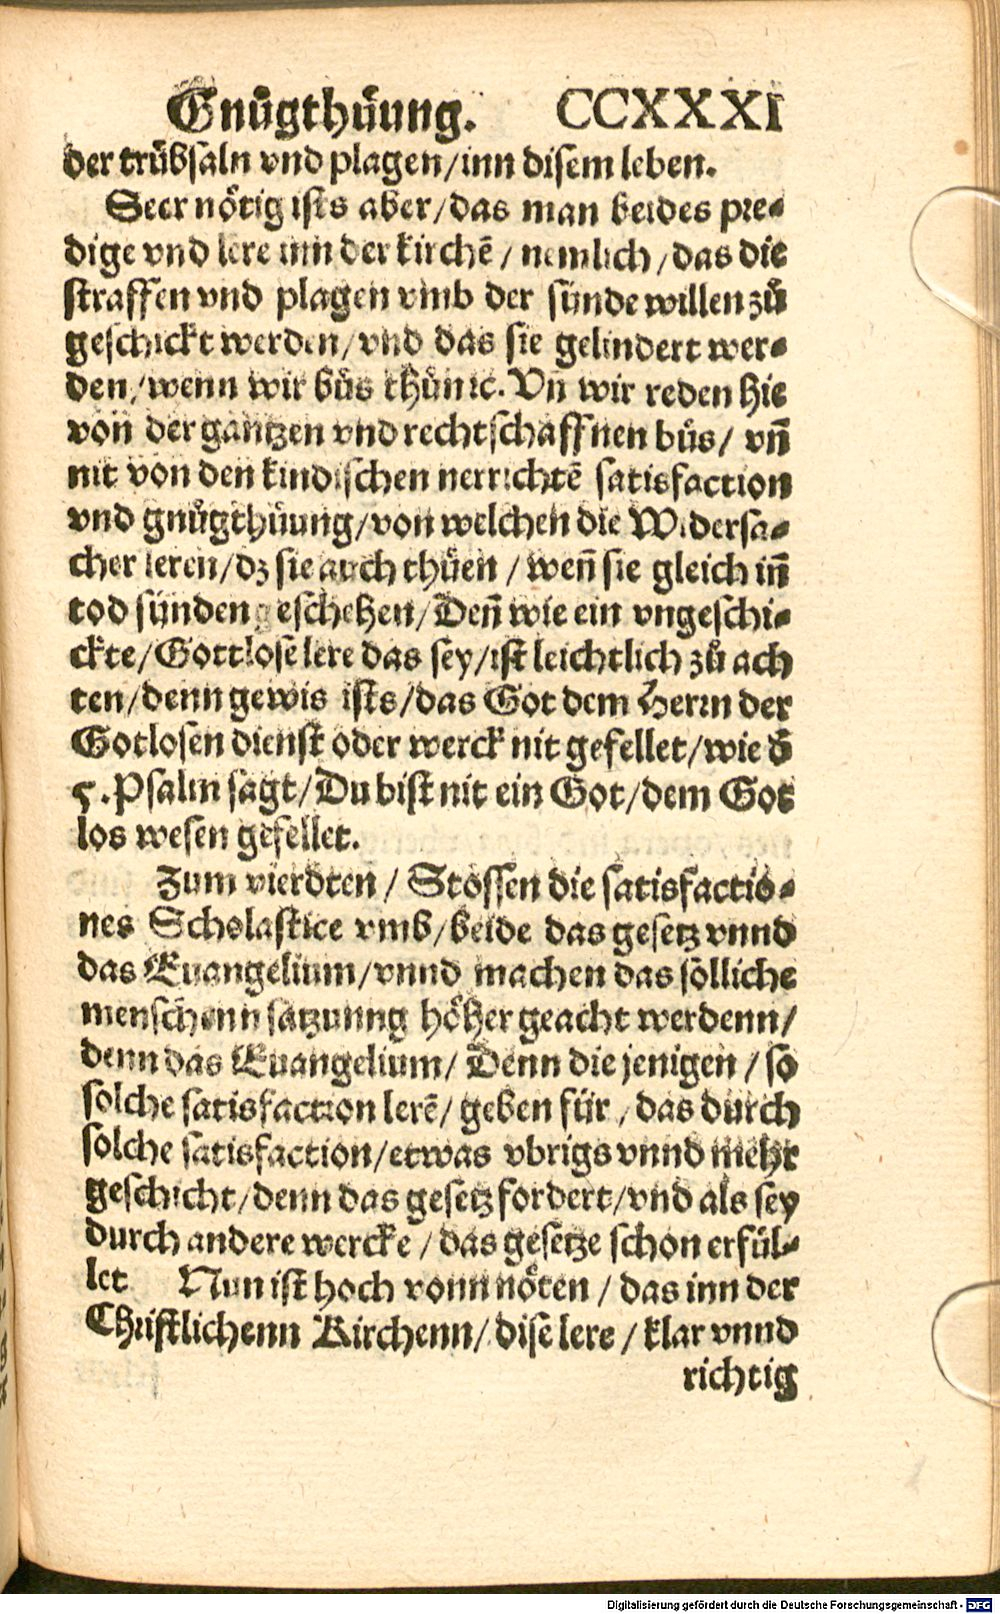 Gnuͤgthuͤung. CCXXXI
der truͤbsaln vnd plagen/inn disem leben.
Seer noͤtig ists aber/das man beides pre-
dige vnd lere inn der kirchē/nemlich/das die
straffen vnd plagen vmb der sünde willen zuͦ
geschickt werden/vnd das sie gelindert wer-
den/wenn wir buͦs thuͤn ꝛc. Vn̄ wir reden hie
von der gantzen vnd rechtschaffnen buͦs/vn̄
nit von den kindischen nerrichtē satisfaction
vnd gnuͤgthuͤung/von welchen die Widersa-
cher leren/dz sie auch thuͤen/wen̄ sie gleich in̄
tod sünden geschehen/Den̄ wie ein vngeschi-
ckte/Gottlose lere das sey/ist leichtlich zuͦ ach
ten/denn gewis ists/das Got dem Herrn der
Gotlosen dienst oder werck nit gefellet/wie d̄
5.Psalm sagt/Du bist nit ein Got/dem Got
los wesen gefellet.
Zum vierdten/Stossen die satisfactio-
nes Scholastice vmb/beide das gesetz vnnd
das Euangelium/vnnd machen das soͤlliche
menschenn satzunng hoͤher geacht werdenn/
denn das Euangelium/Denn die jenigen/so
solche satisfaction lerē/geben für/das durch
solche satisfaction/etwas vbrigs vnnd mehr
geschicht/denn das gesetz fordert/vnd als sey
durch andere wercke/das gesetze schon erfül-
let Nun ist hoch vonn noͤten/das inn der
Christlichenn Kirchenn/dise lere/klar vnnd
richtig
Digitalisierung gefördert durch die Deutsche Forschungsgemeinschaft - DFG